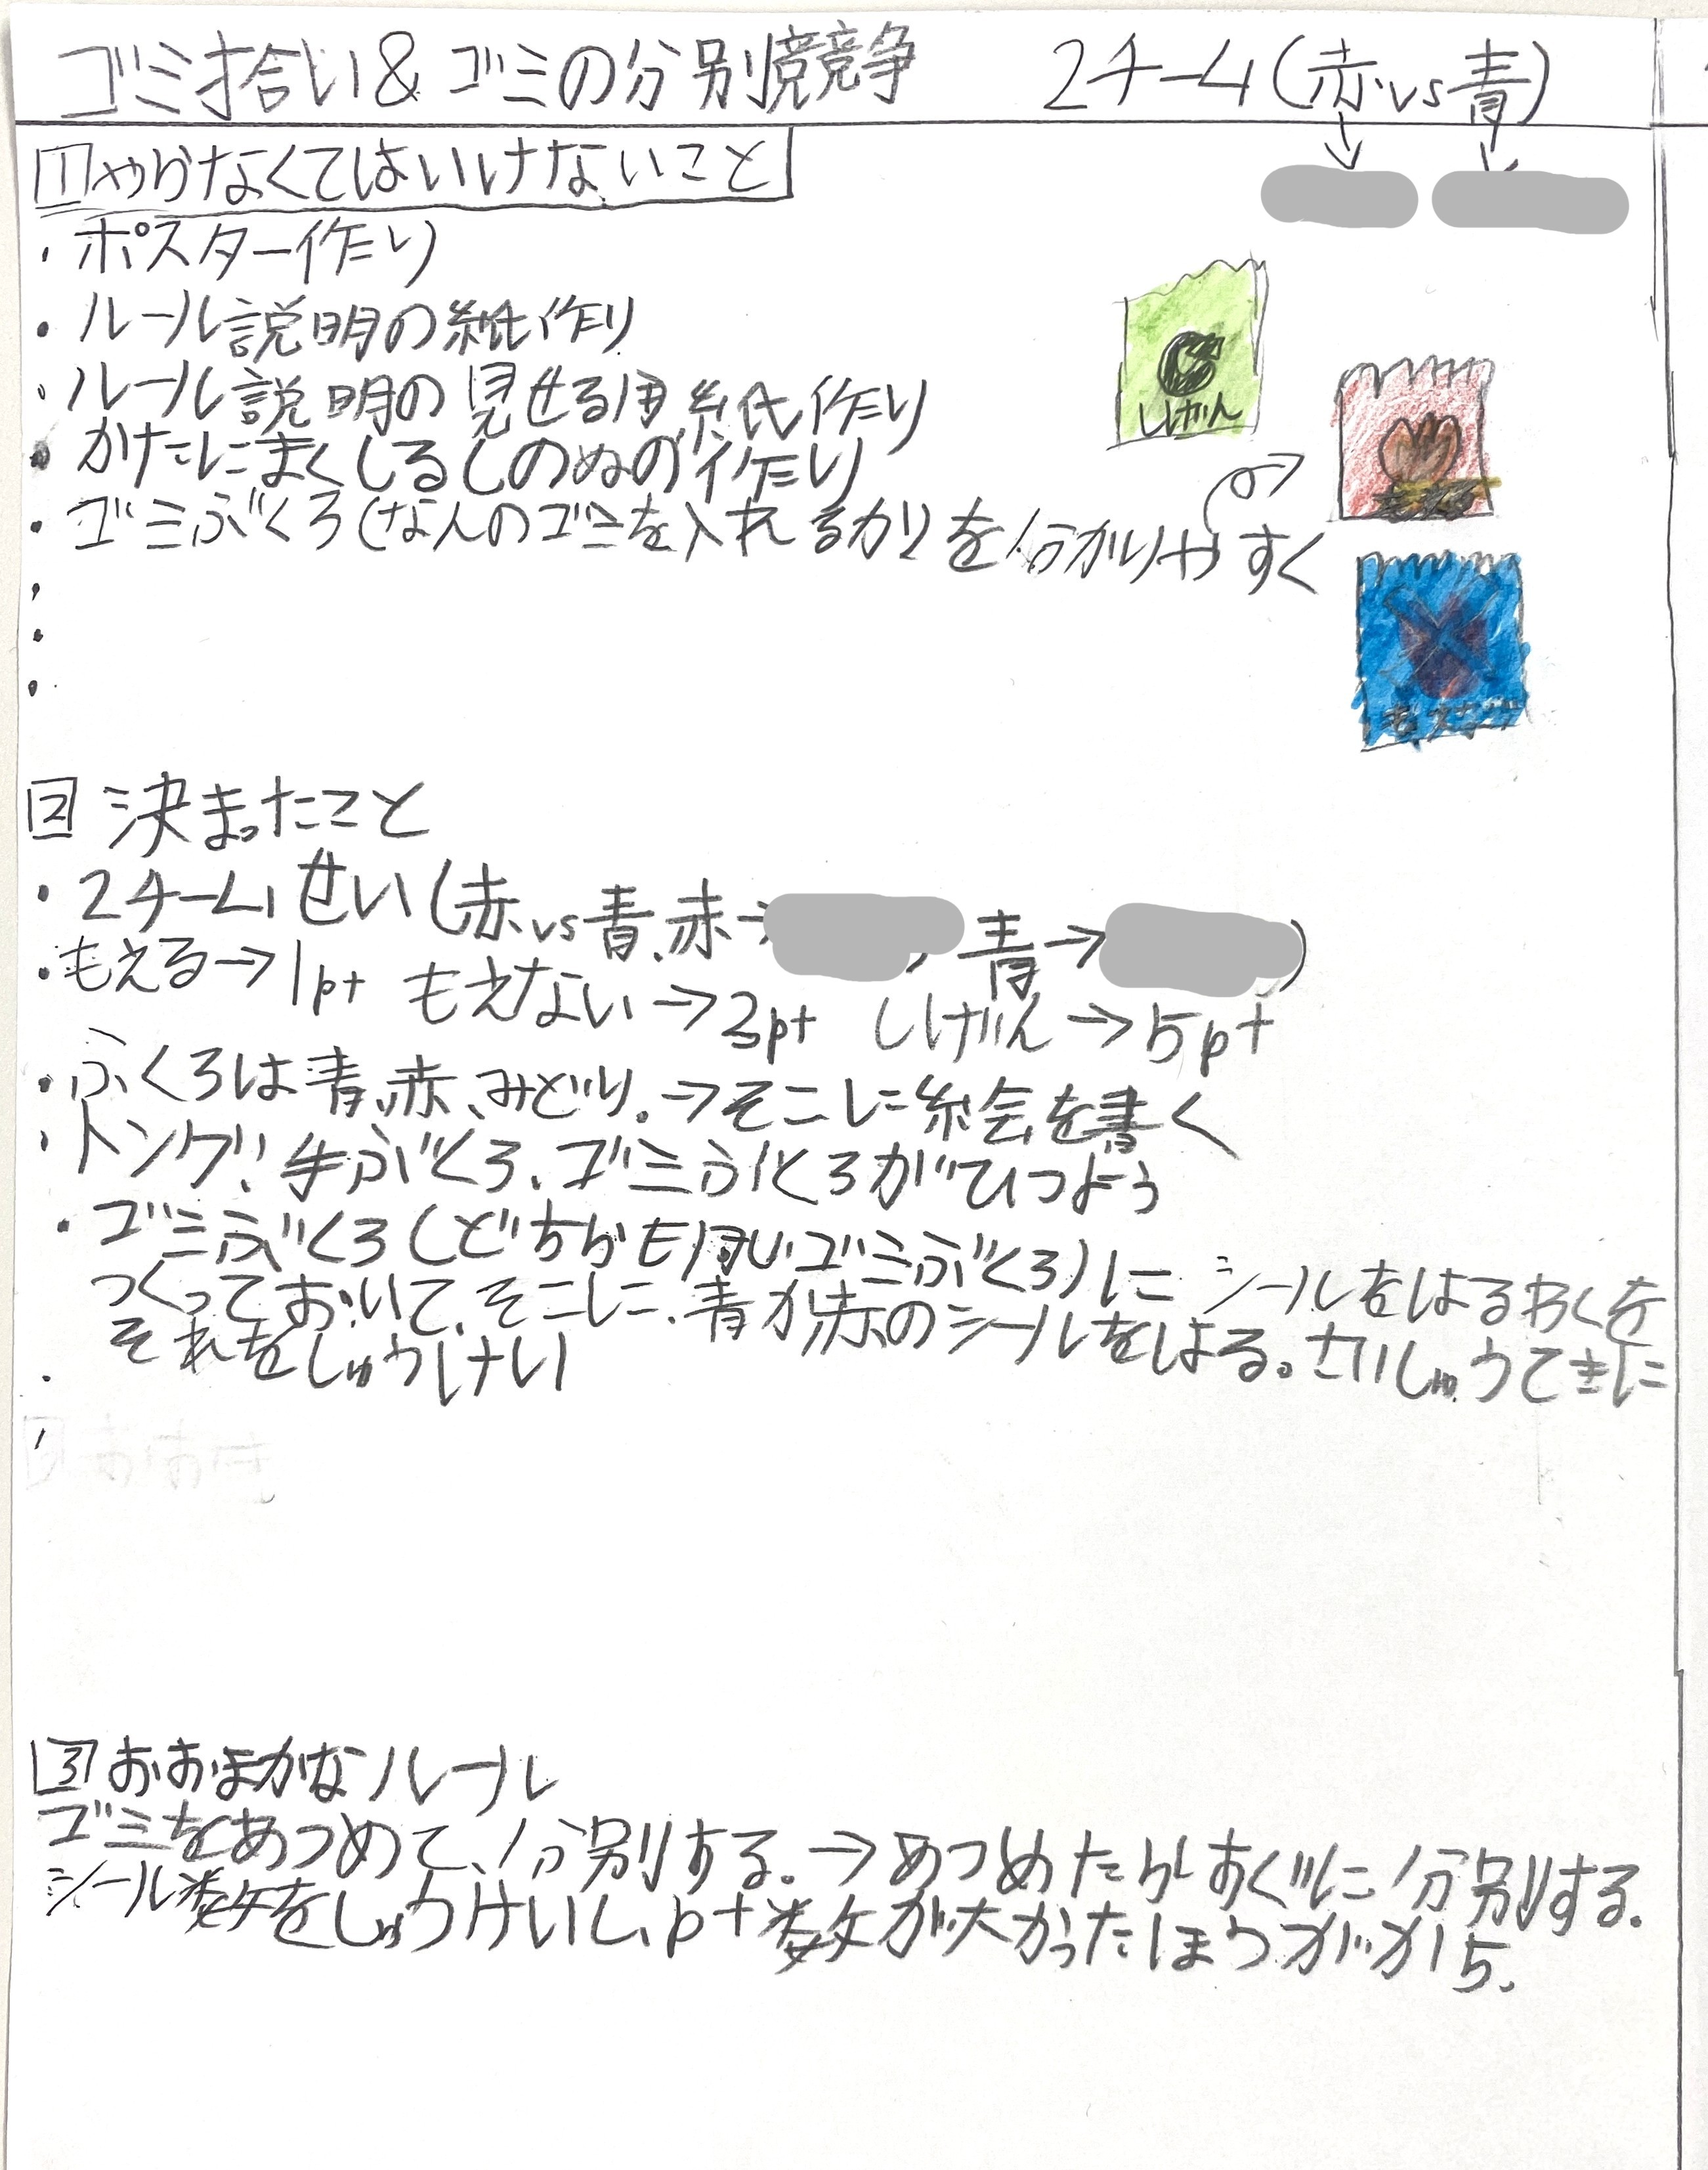 ゴミ拾い&ゴミの分別競争 2チーム(赤vs青)
1 やらなくてはいけないこと
・ポスター作り
・ルール説明の紙作り
・ルール説明の見せる用紙作り
・かたにまくしるしのぬの作り
・ゴミぶくろ(なんのゴミを入れるか)を分かりやすく
しげん
もえる
もえない
2 決まったこと
・2チームせい(赤vs青、赤→ , 青→ )
・もえる→1pt もえない→3pt しげん→5pt
・ふくろは青、赤、みどり。→そこに絵を書く
・トング、手ぶくろ、ゴミふくろがひつよう
・ゴミぶくろ(どちらも同じゴミぶくろ)に シールをはるわくを
つくっておいて、そこに、青か赤のシールをはる。さいしゅうてきに
それをしゅうけい
3 おおまかなルール
ゴミをあつめて、分別する。→あつめたらすぐに分別する。
シール数をしゅうけいし、pt数が大かったほうがかち。